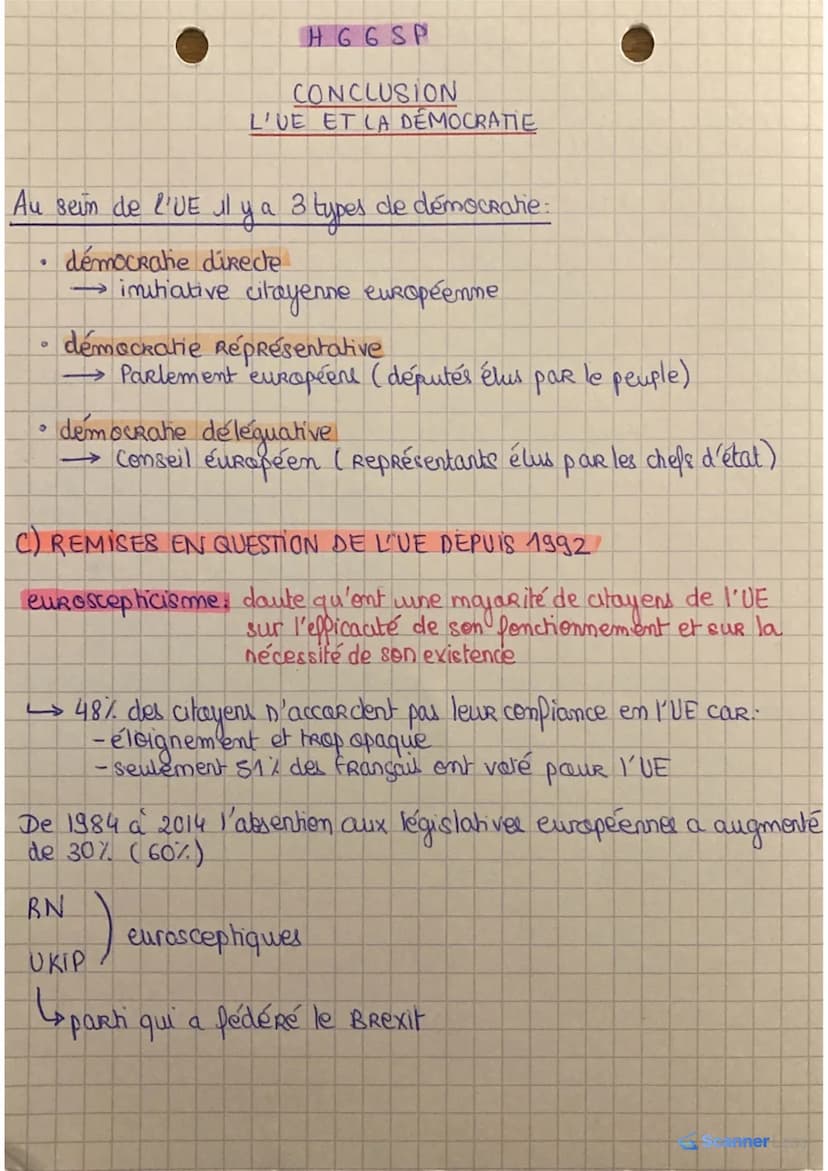 HGGSP
CONCLUSION
L'UE ET LA DÉMOCRATIE
Au sein de l'UE il y a 3 types de démocratie:
• démocratie directe
→ initiative citoyenne européenne
• démocratie Réprésentative
→ Parlement européens (députés élus par le peuple)
• démocratie déléguative
→ Conseil éuropéen (Représentants élus par les chefs d'état)
C) REMISES EN QUESTION DE L'UE DEPUIS 1992
euroscepticisme: doute qu'ont une majorité de citoyens de l'UE
sur l'efficacité de son fonctionnement et sur la
nécessité de son existence
↳ 48% des citoyens n'accordent pas leur confiance en l'UE car:
- éloignement et trop opaque
- seulement 51% des français ont voté pour l'UE
De 1984 à 2014 l'absention aux législatives européennes a augmenté
de 30% (60%)
RN
UKIP
) eurosceptiques
↳ parti qui a fédéré le Brexit
Scanner